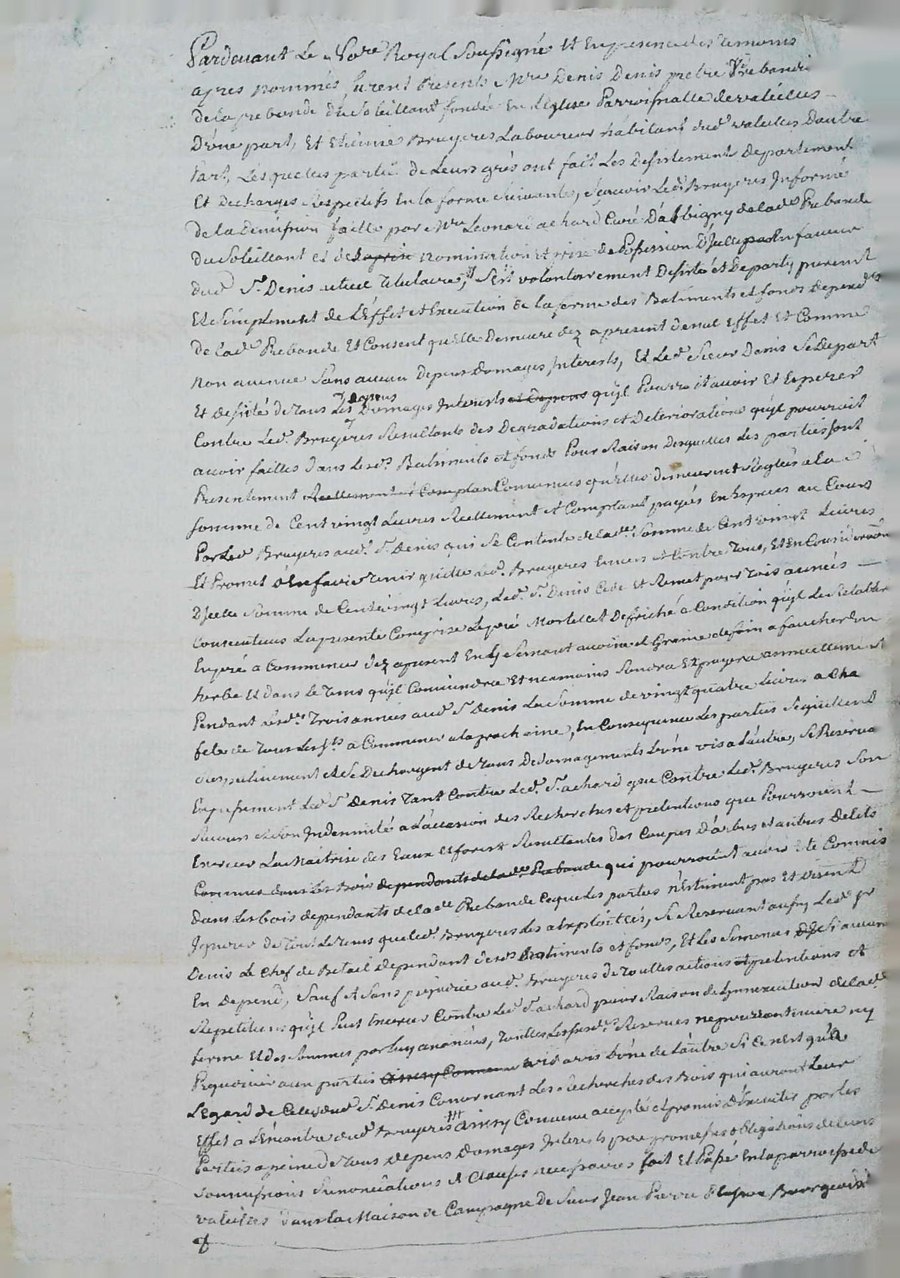 Pardevant Le No.re Royal Soussigné Et En presence des temoins
apres nommés, furent Presents M.re Denis Denis pretre Prebandie
de la prebande du Soleillant fondée En L'Eglise Parroissialle de valeilles
D'une part, Et Etienne Bruyeres Laboureur habitant dud. valeilles D'autre
Part, Lesquelles parties de Leurs grés ont fait Les Desistements Departement
Et Decharges Respectifs En la forme suivante, Scavoir Led. Bruyeres Informé
de la Demission faitte par M.re Leonard achard Curé D'albigny de lad. Prebande
du Soleillant et de nomination et prise de Possession D'Icelle En faveur
dud. S.r Denis actuel titulaire, S'est volontairement Desisté et Departy purement
Et Simplement de L'Effet et Execution de la ferme des Batiments et fonds Dependants
de lad. Prebande Et Consent qu'elle Demeure dez a present de nul Effet Et Comme
Non avenue Sans aucun Depens Domages Interests, Et Led. Sieur Denis Se Depart
Et Desiste de tous Les Depens Domages Interests et Depens qu'il Pourroit avoir Et Esperer
Contre Led. Bruyeres Resultants des Degradations et Deteriorations qu'il pourroit
avoir faittes dans Lesd. Batiments et fonds Pour Raison Desquelles Les parties sont
Presentement Reellement et Comptant Convenues qu'elles demeurent Reglées a la
somme de Cent vingt Livres Reellement et Comptant payés En Especes au Cours
Par Led. Bruyeres aud. S.r Denis qui Se Contente de lad. Somme de Cent vingt Livres
Et Promet En faire tenir quitte Led. Bruyeres Envers et Contre Tous, Et En Consideration
D'Icelle Somme de Cent vingt Livres, Led. S.r Denis Cede et Remet pour Trois années
Consecutives La presente Comprise Le pré Mortel et Defriché a Condition qu'il Le Retablira
En pré a Commencer dez a present En Semant avoine et Graine de foin a faucher En
herbe Et dans Le Tems qu'il Conviendra Et neamoins Sendra Et payera annuellement
Pendant Lesd. Trois années aud. S.r Denis La Somme de vingt quatre Livres a Cha
fete de Tous Les S.ts a Commencer a la prochaine, En Consequence Les parties Se quittent
Et Se Dechargent de tous Dedomagements L'une vis a L'autre, Se Reserva
Expressement Led. S.r Denis Tant Contre Led. S.r achard que Contre Led. Bruyeres Son
Recours et Son Indemnité a L'occasion des Recherches et pretentions que Pourroient
Exercer La Maitrise des Eaux Et forets Resultantes des Coupes D'arbres et autres Delits
Commis dans Les Bois dependants de lad. Prebande qui pourroient avoir été Commis
dans Les bois dependants de lad. Prebande Ce que Les parties n'Estiment pas Et Disent
Ignorer de Tout Le Tems que Led. Bruyeres Les a Exploittés, Se Reservant aussy Led. S.r
Denis Le Chef de Betail Dependant desd. Batiments et fonds, Et Les Semences Si aucun
En Depend, Sauf et Sans prejudice aud. Bruyeres de Touttes actions et pretentions et
Repetitions qu'il Peut Exercer Contre Led. S.r achard pour Raison de L'Inexecution de lad.
ferme Et des Sommes par luy avancées, Touttes Lesquelles Reserves ne pourront nuire ny
Prejudicier aux parties vis a vis L'une de L'autre Si Ce n'Est qu'a
L'Egard de Celles dud. S.r Denis Concernant Les Recherches des Bois qui auront Leur
Effet a L'Encontre dud. Bruyeres Ainsy Convenu accepté et promis D'Executer par les
Parties a peine de Tous depens Domages Interests par promesses obligations de biens
Soumissions Renonciations Et Clauses necessaires fait Et Passé En la parroisse de
valeilles dans La Maison de Campagne de Sieur Jean Pierre Bourgeois